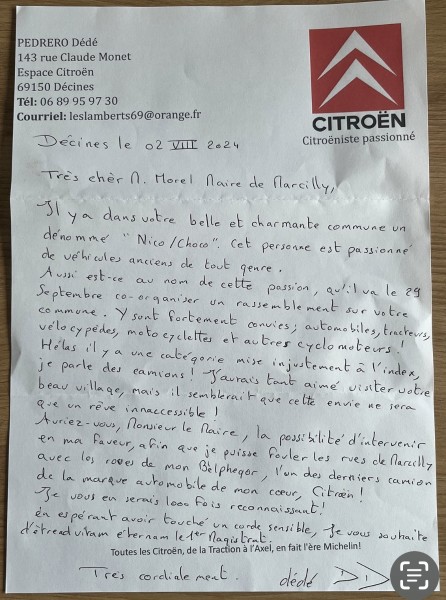 PEDRERO Dédé
143 rue Claude Monet
Espace Citroën
69150 Décines
Tél: 06 89 95 97 30
Courriel: leslamberts69@orange.fr
CITROËN
Citroëniste passionné
Décines le 02 VIII 2024
Très chèr M. Morel Maire de Marcilly,
Il y a dans votre belle et charmante commune un
dénommé "Nico/Choco". Cet personne est passionné
de véhicules anciens de tout genre.
Aussi est-ce au nom de cette passion, qu'il va le 29
Septembre co-organiser un rassemblement sur votre
commune. Y sont fortement conviés; automobiles, tracteurs,
vélocypédes, motocyclettes et autres cyclomoteurs!
Hélas il y a une catégorie mise injustement à l'index,
je parle des camions! J'aurais tant aimé visiter votre
beau village, mais il semblerait que cette envie ne sera
que un rêve innaccessible!
Auriez-vous, Monsieur le Maire, la possibilité d'intervenir
en ma faveur, afin que je puisse fouler les rues de Marcilly
avec les roues de mon Belphegor, l'un des derniers camion
de la marque automobile de mon cœur, Citroën!
Je vous en serais 1000 fois reconnaissant!
en espérant avoir touché un corde sensible, Je vous souhaite
d'être ad vitam éternam le 1er Magistrat.
Toutes les Citroën, de la Traction à l'Axel, en fait l'ère Michelin!
Très cordialement. dédé DD